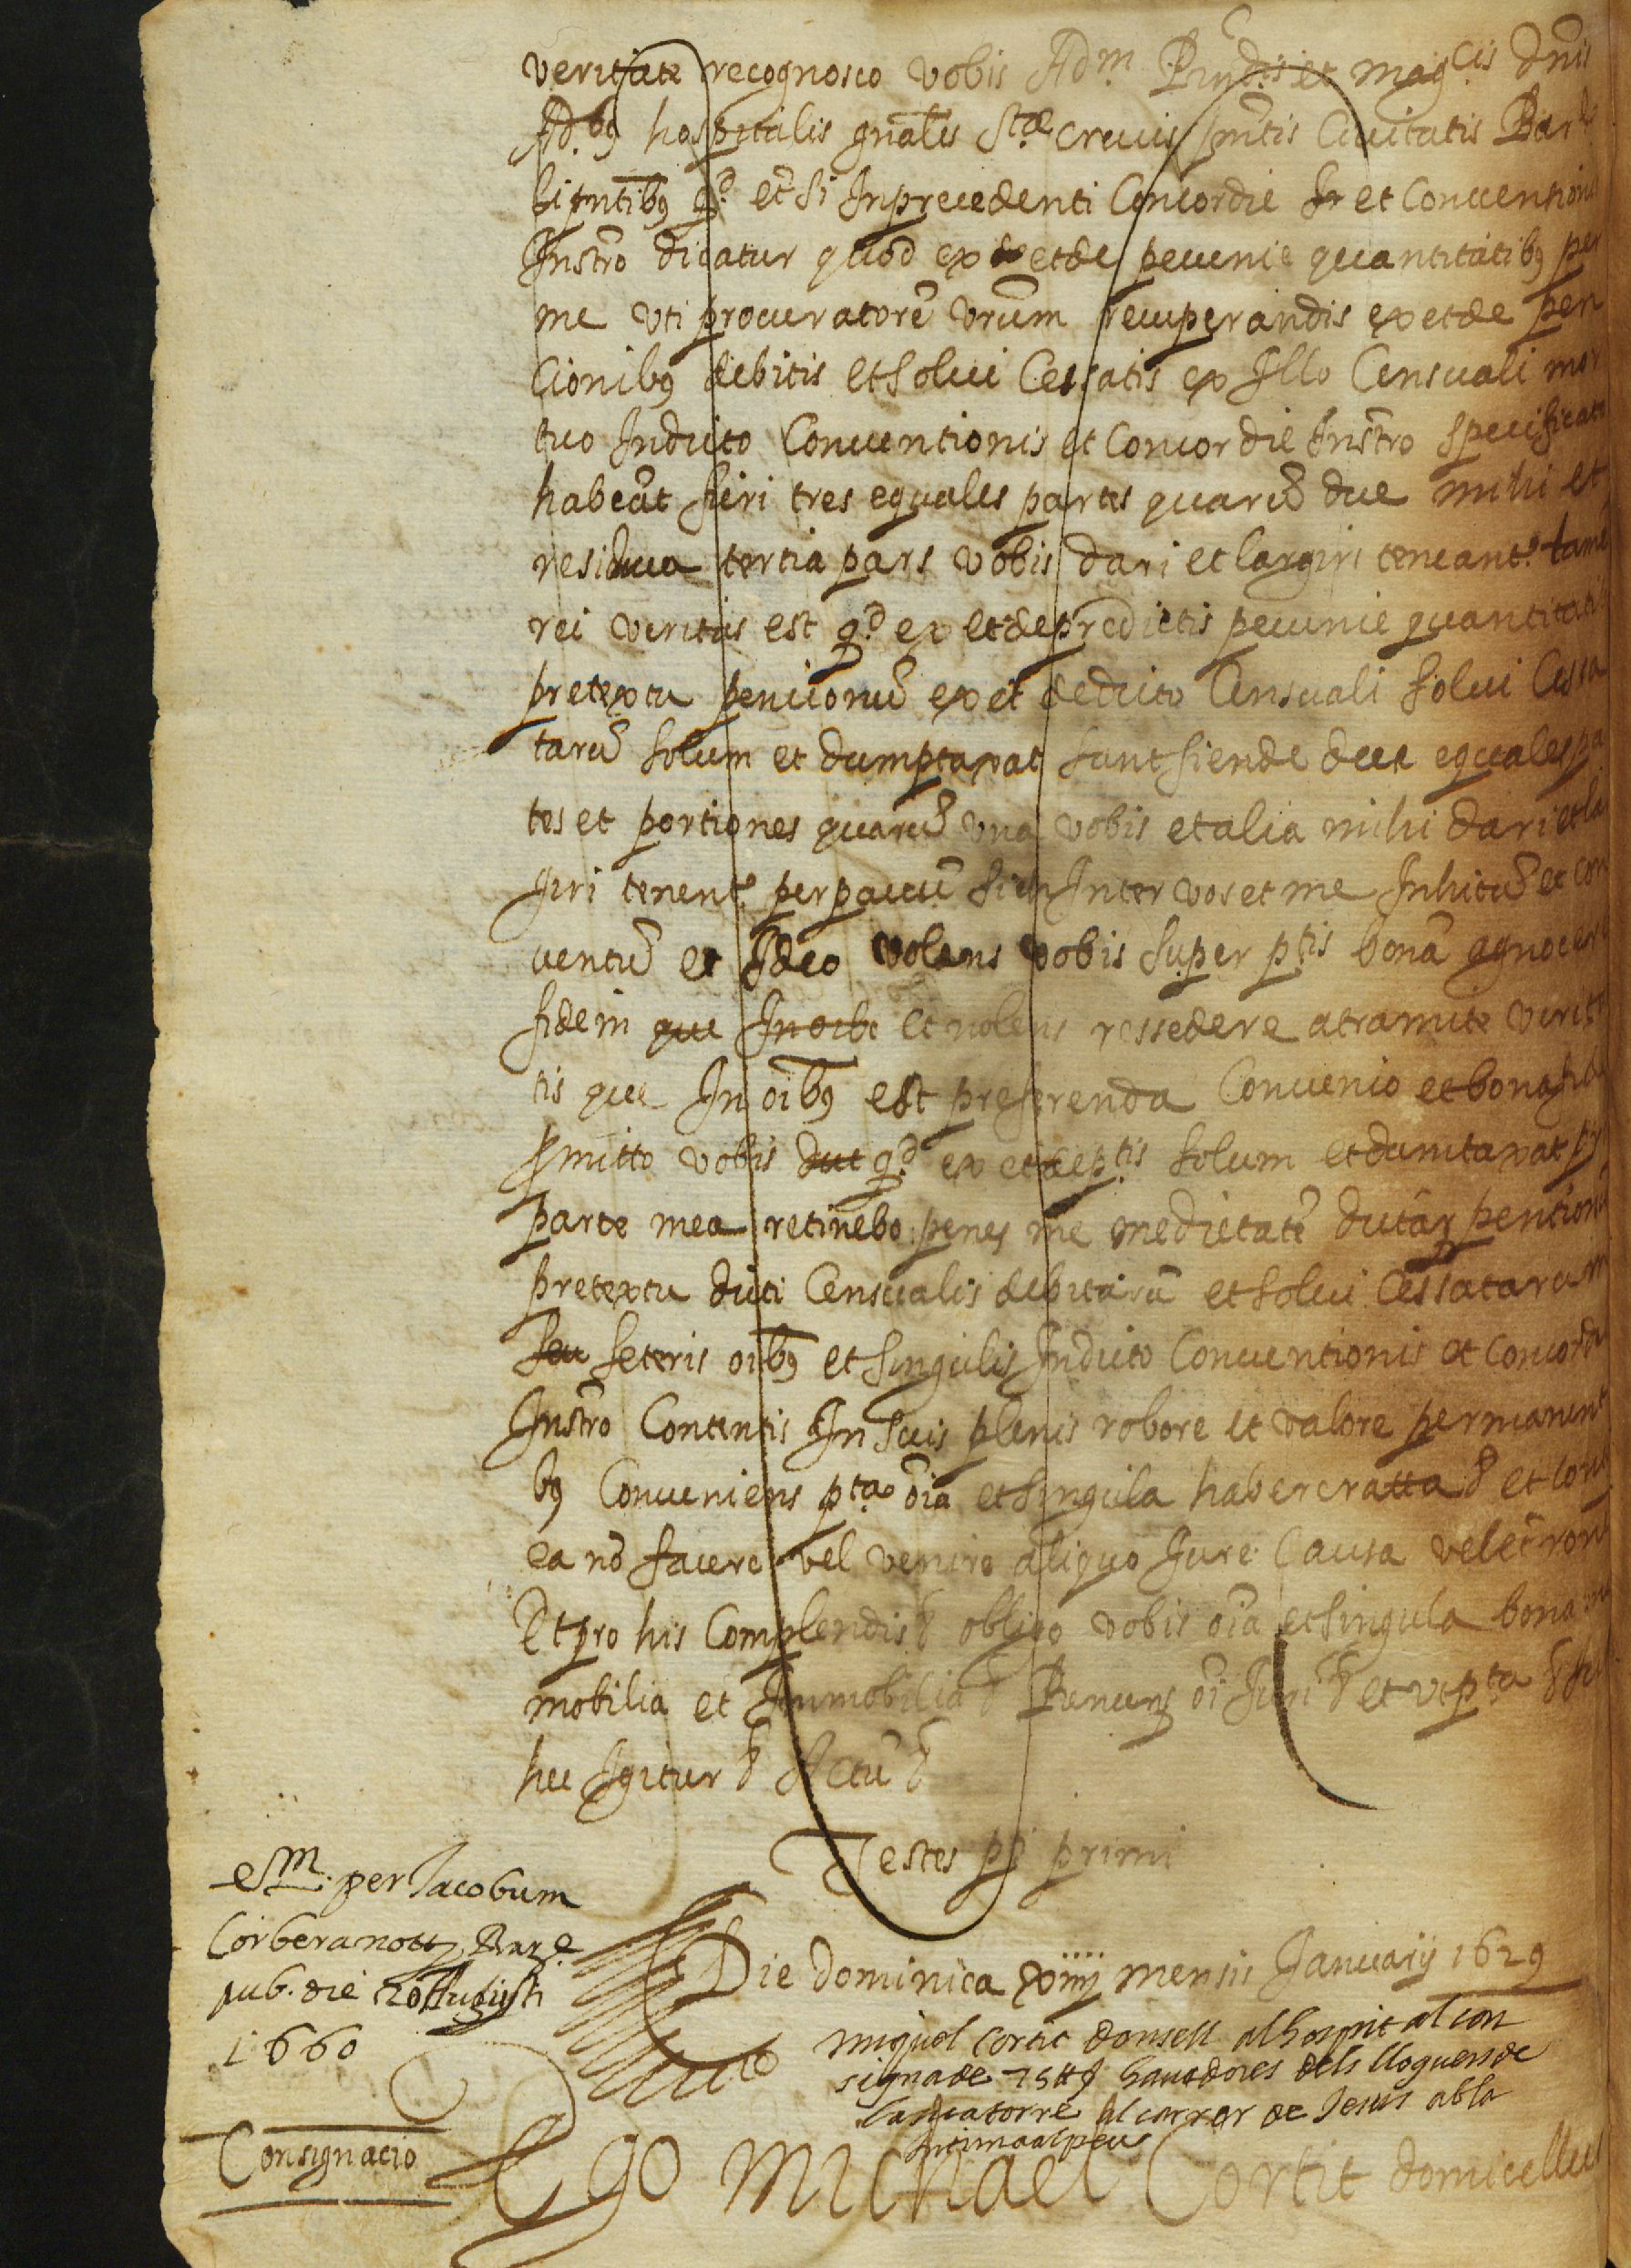 veritate recognosco vobis Adm. Rnd.is et mag.cis dnis
Ad.b9 hospitalis gnalis Stæ crucis pntis Civitatis Bar.
pntib9 q.d et si In precedenti Concordie et Conventionis
Instro dicatur quod ex et de pecunie quantitatib9 per
me vti procuratore vrum recuperandis ex et de pen
cionib9 debitis et solvi Cessatis ex Illo Censuali mor
tuo In dicto Conventionis et Concordie Instro specificato
habeat fieri tres equales partes quaru due mihi et
residua tertia pars vobis dari et largiri teneant.r tame
rei veritas est q.d ex et de predictis pecunie quantitatib
pretextu pencionu ex et de dicto Censuali solvi Cessa
taru solum et dumptaxat sunt fiende due equales pa
tes et portiones quaru vna vobis et alia mihi dari et la
giri tenent.r per pactu sich Inter vos et me Inhitu et con
ventu et Ideo volens vobis super ptis bona agnocere
fidem que In oibe et nolens ressedere a tramite verita
tis que In oib9 est preferenda Convenio et bona fide
pmitto vobis q.d ex et de p.tis solum et dumtaxat pr
parte mea retinebo penes me medietate dictar pention
pretextu dicti Censualis debitaru et solvi Cessatarum
seu seteris oib9 et singulis In dicto Conventionis et Concordie
Instro Contentis In suis plenis robore et valore permanent
b9 Conveniens p.ta oia et singula habere ratta et cont
ea no facere vel venire aliquo Jure Causa vel et ron
Et pro his Complendis obligo vobis oia et singula bona m
mobilia et Immobilia Renuns oi Juri et vt p.ta
hec Igitur Actu
Testes pti primi
esm. per Jacobum
Corbera nott Barne
pub. die 20 Augusti
1660
Die dominica xiiij mensis Januarij 1629
miquel cortit donsell al hospital con
signa de 75 ℔ havedores dels lloguers de
la torre al carrer de Jesus ab la
intima al peu
Consignacio
Ego Michael Cortit domicellus